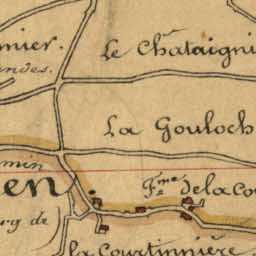 mier.
Le Chataigni
andes.
La Gouloch
min
en
Fme de la Cou
rg de
la Courtinnière